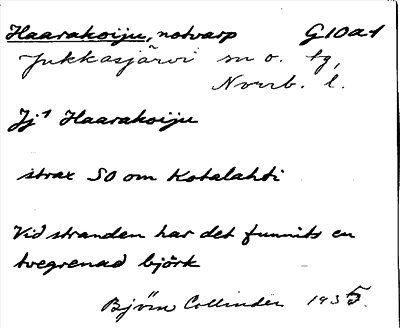 Haarakoiju, notvarp G10a1
Jukkasjärvi sn o. tg,
Norrb. l.
Jj1 Haarakoiju
strax SO om Kotalahti
Vid stranden har det funnits en
tvegrenad björk
Björn Collinder 1935.